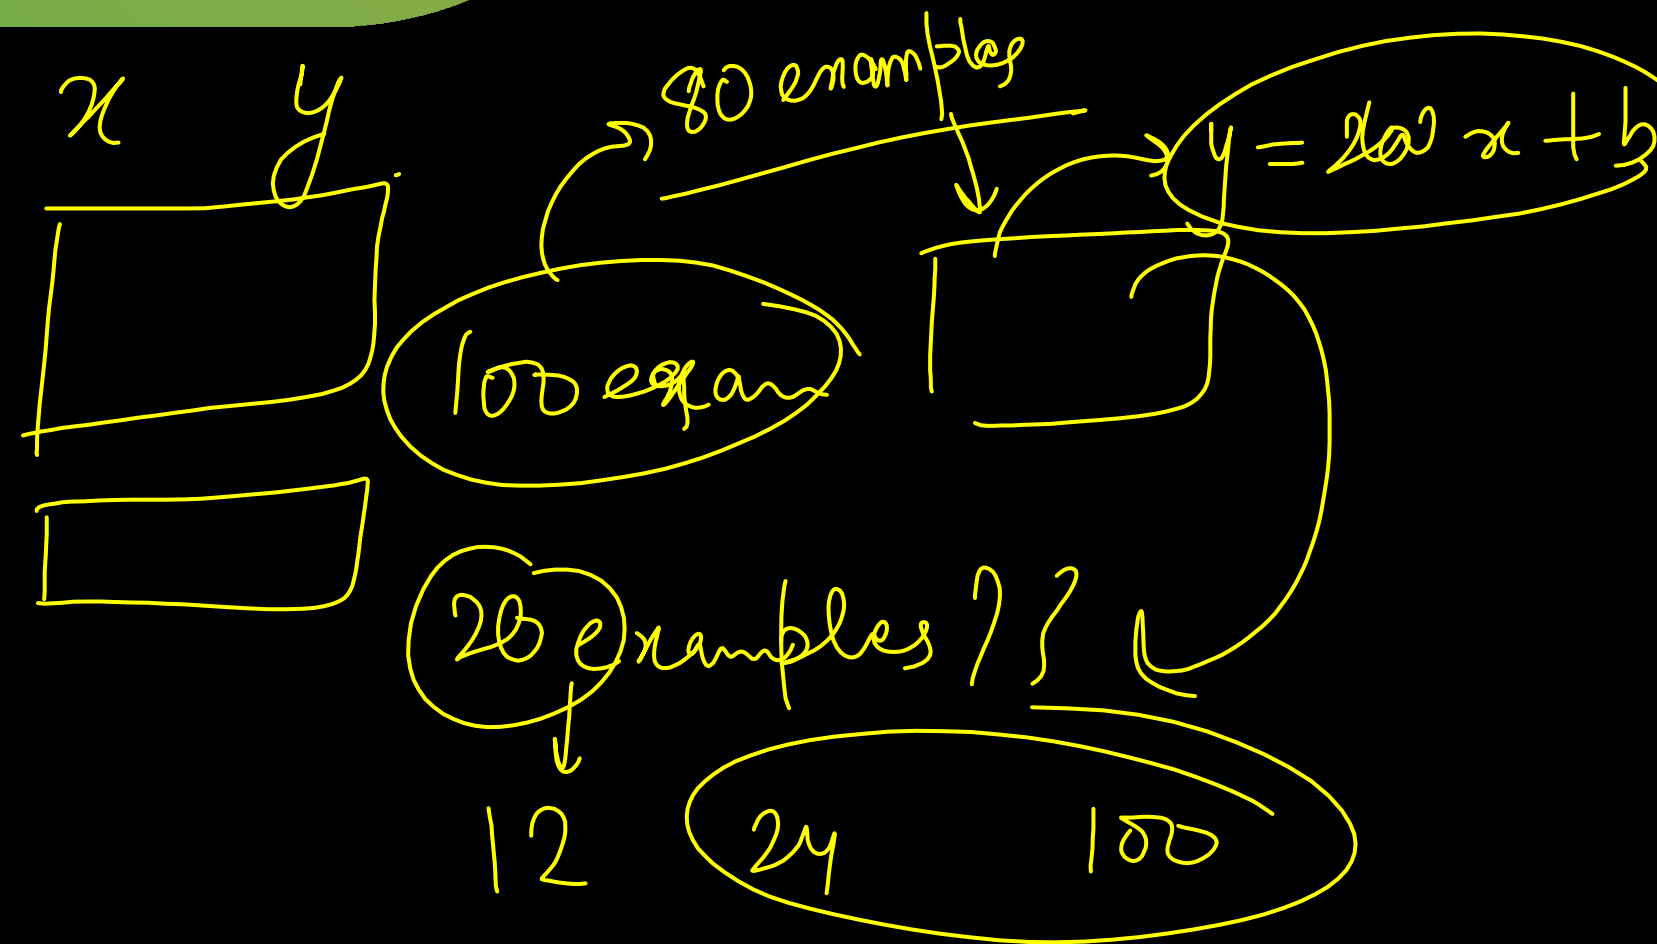 x y
80 examples
y = w x + b
100 exam
20 examples ??
12 24 100